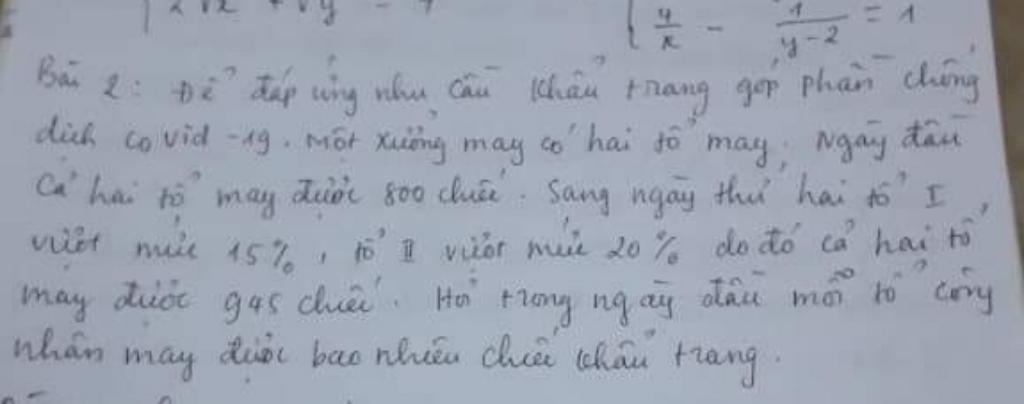 4/x - 1/y-2 = 1
Bài 2: Để đáp ứng nhu cầu khẩu trang góp phần chống
dịch covid -19. Một xưởng may có hai tổ may. Ngày đầu
Cả hai tổ may được 800 chiếc. Sang ngày thứ hai tổ I
vượt mức 15%, tổ II vượt mức 20% do đó cả hai tổ
may được 945 chiếc. Hỏi trong ngày đầu mỗi tổ công
nhân may được bao nhiêu chiếc khẩu trang.